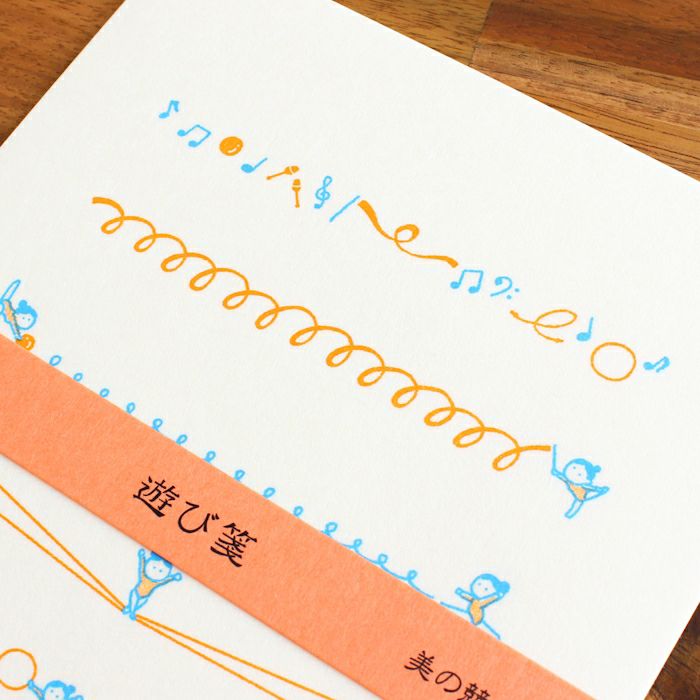 遊び箋
美の競